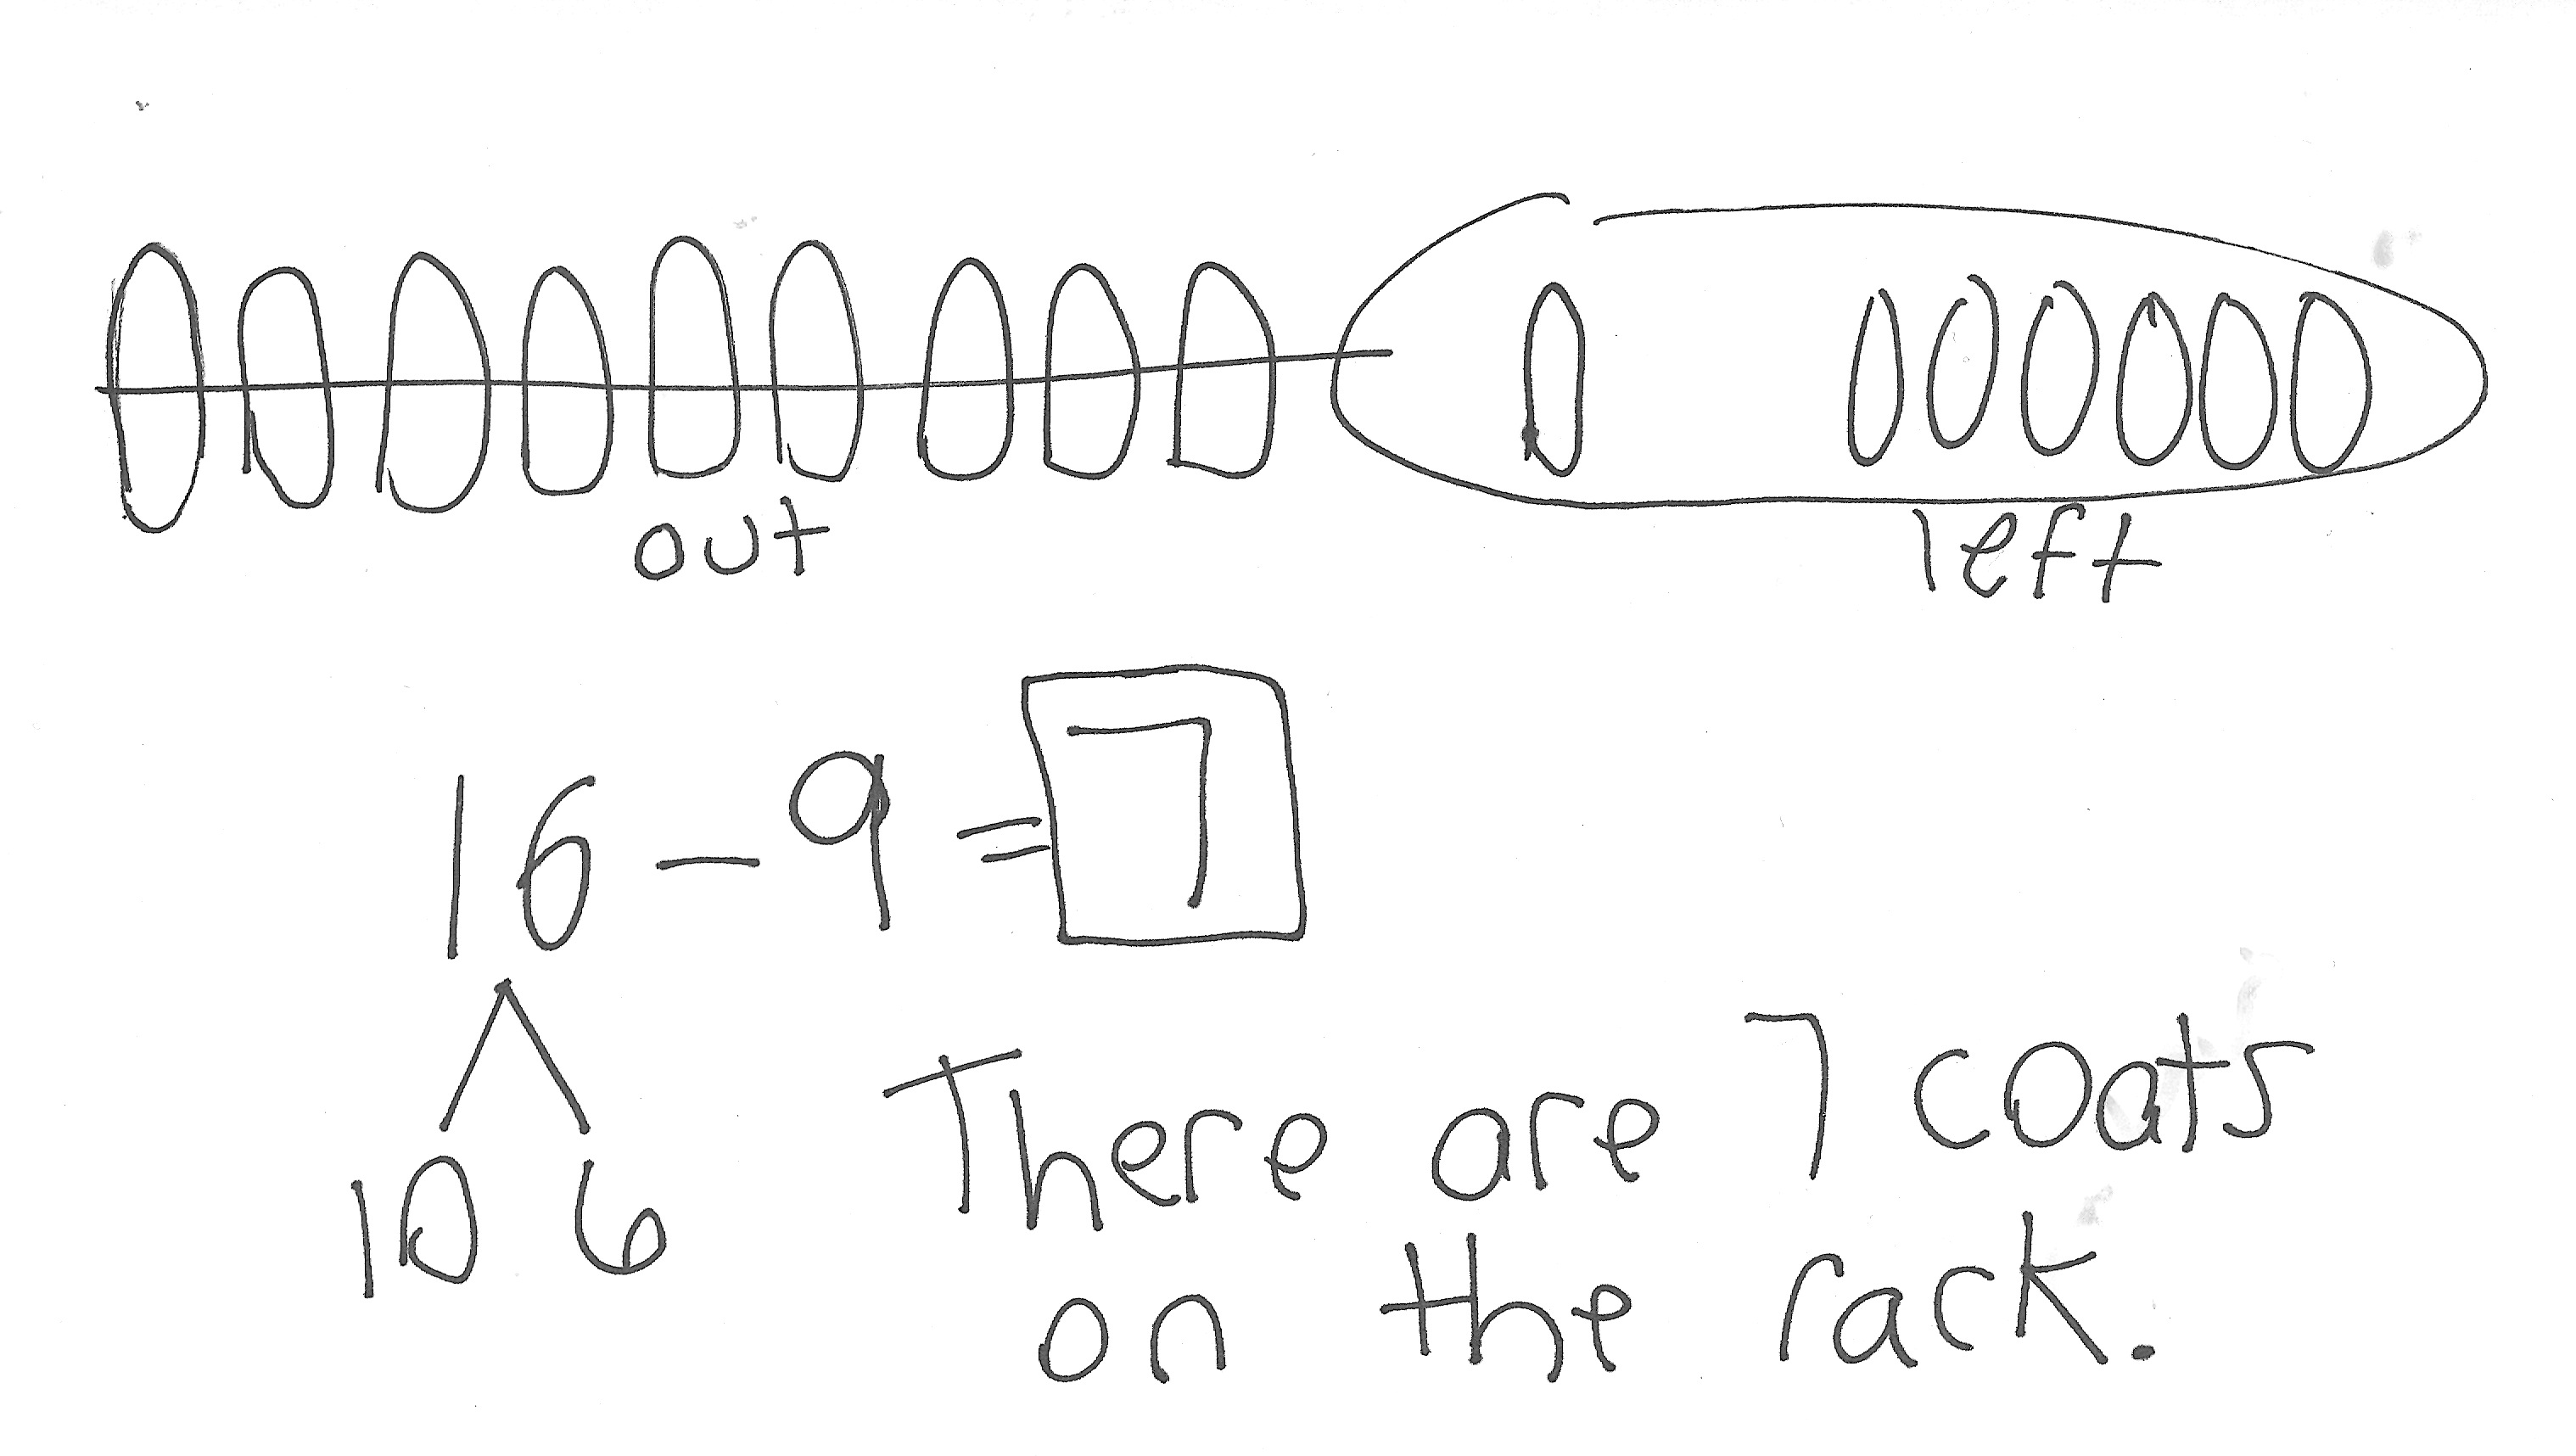 out
left
16 - 9 = 7
10 6
There are 7 coats
on the rack.